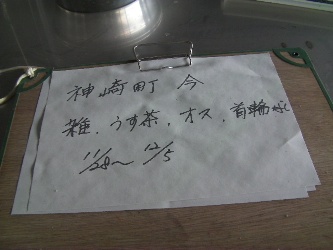 神崎町 今
雑、うす茶、オス、首輪
11/28〜12/5